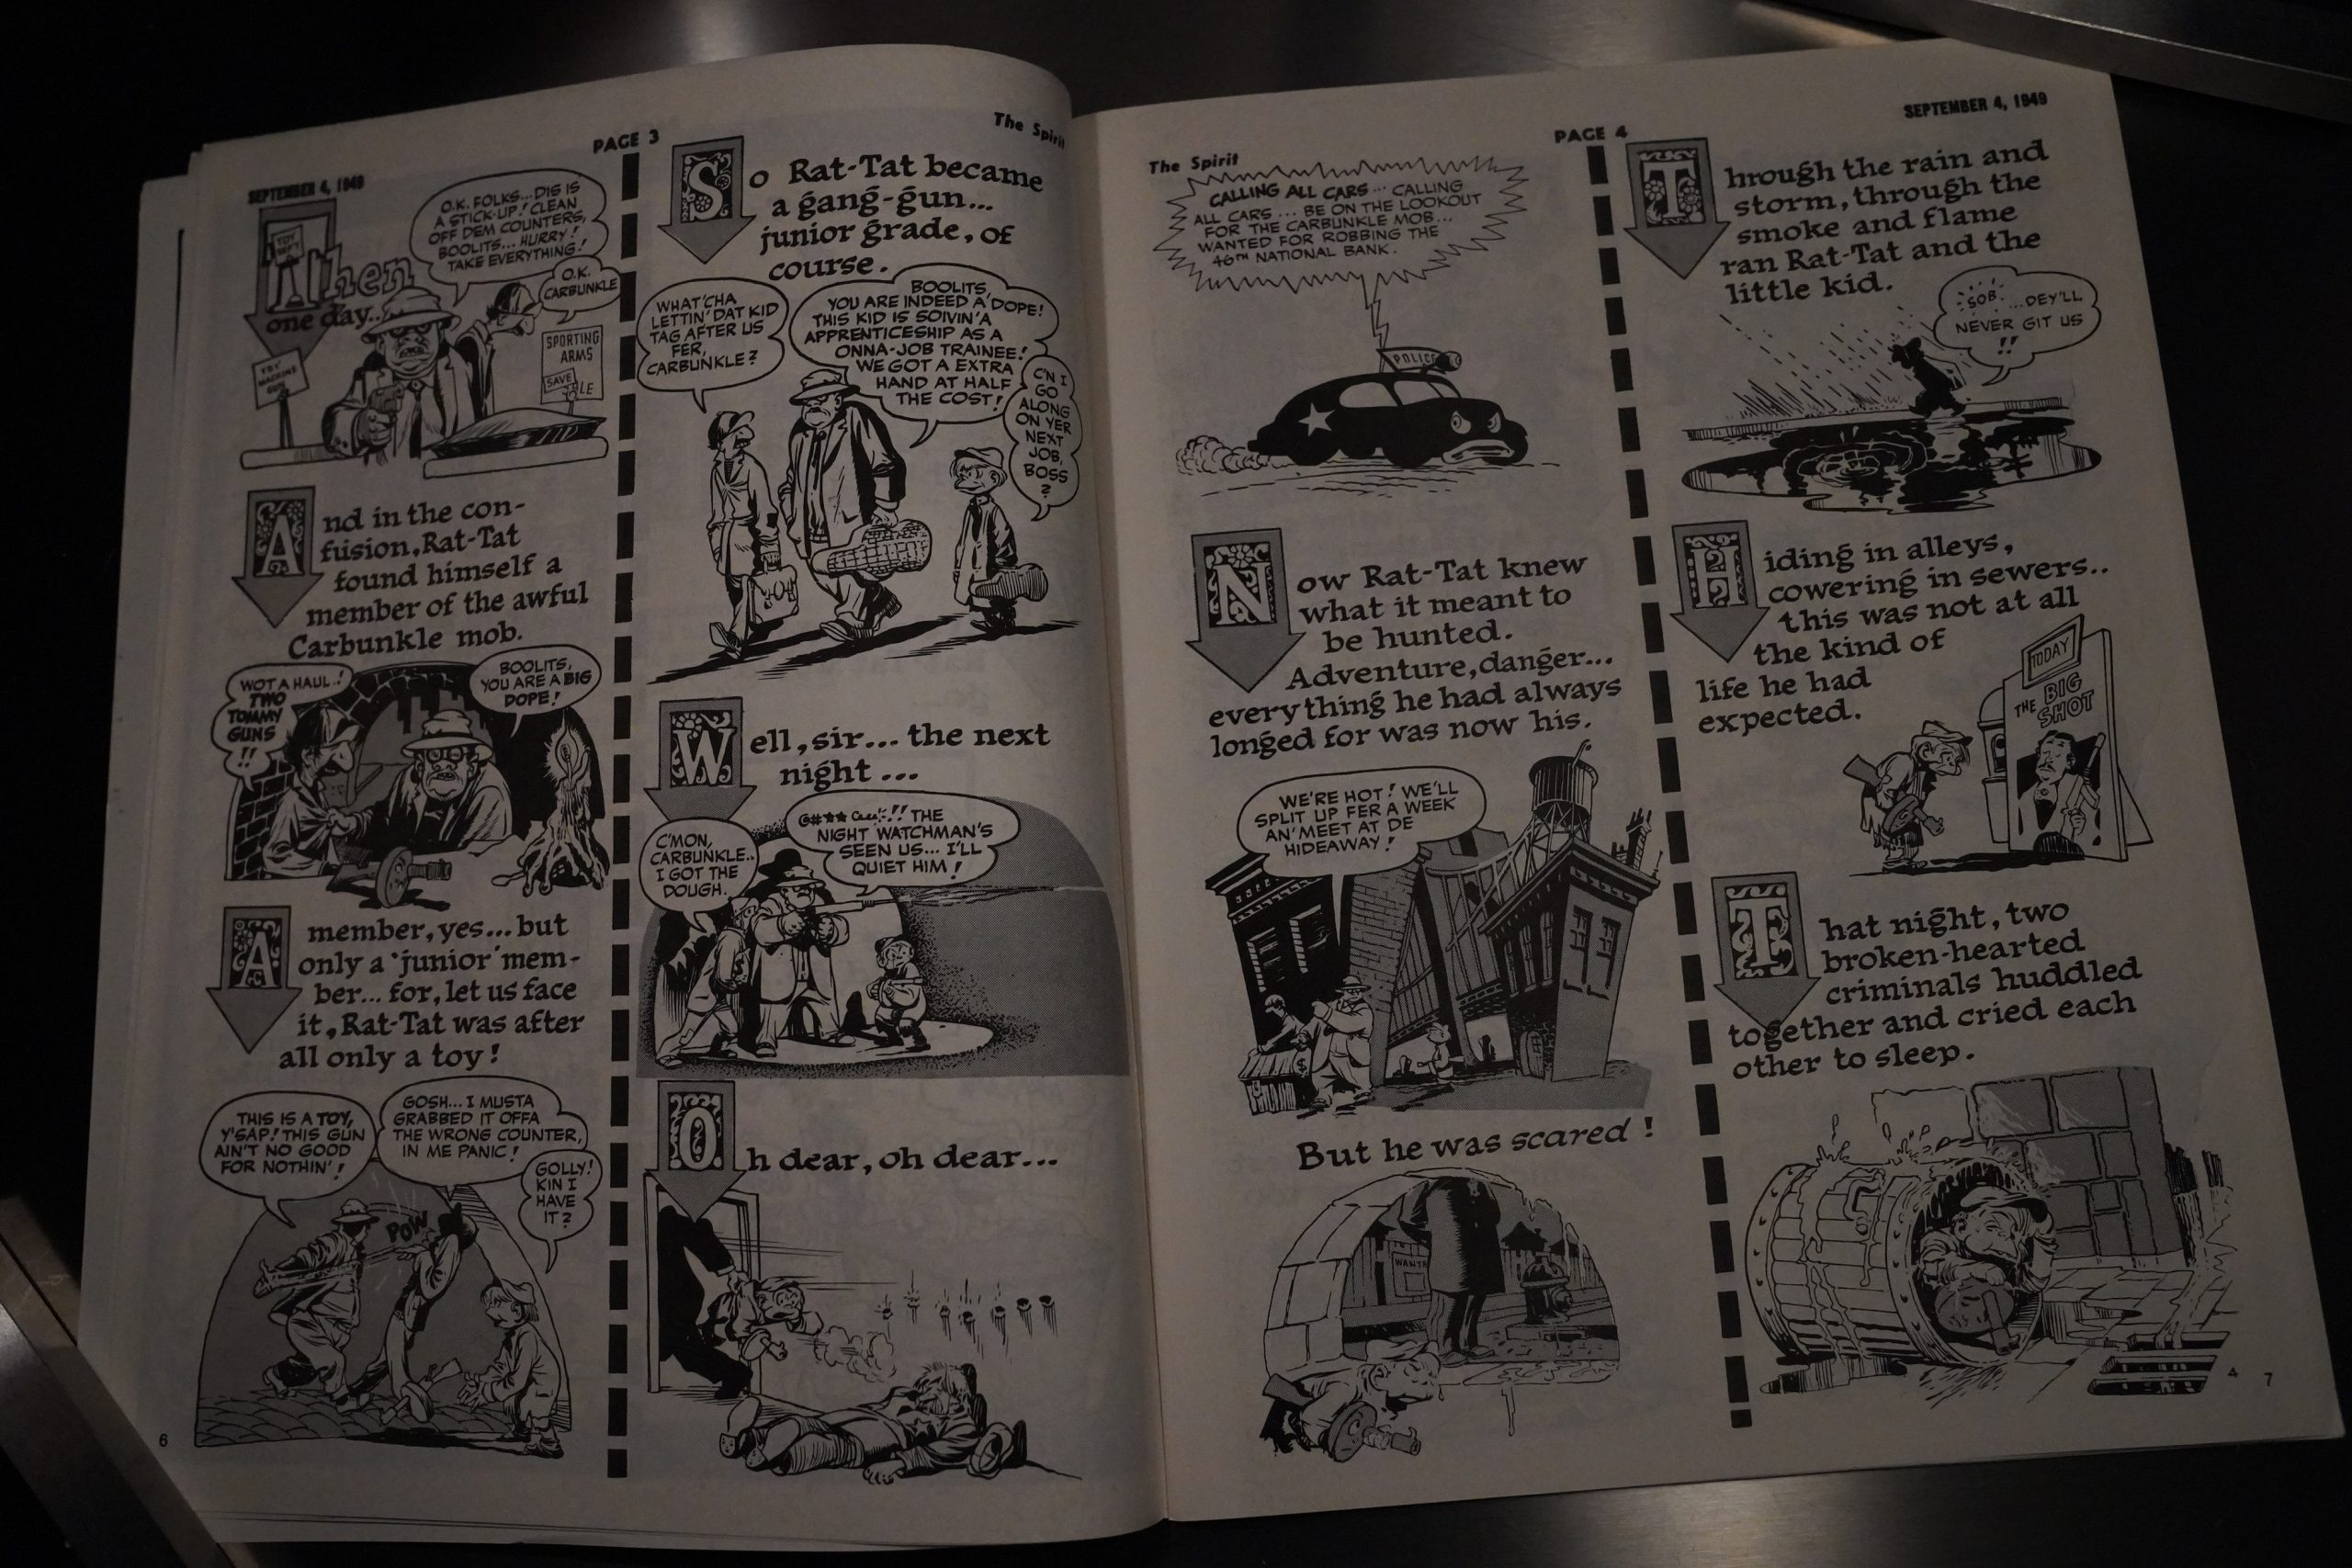 SEPTEMBER 4, 1949
PAGE 3
The Spirit
Then
one day..
TOY
O.K. FOLKS...DIS IS
A STICK-UP! CLEAN
OFF DEM COUNTERS,
BOOLITS... HURRY!
TAKE EVERYTHING!
O.K.
CARBUNKLE
TOY
MACHINE
GUN
SPORTING
ARMS
SAVE
And in the con-
fusion, Rat-Tat
found himself a
member of the awful
Carbunkle mob.
WOT A HAUL..!
TWO
TOMMY
GUNS
!!
BOOLITS,
YOU ARE A BIG
DOPE!
A member, yes... but
only a 'junior' mem-
ber... for, let us face
it, Rat-Tat was after
all only a toy!
THIS IS A TOY,
Y'SAP! THIS GUN
AIN'T NO GOOD
FOR NOTHIN'!
GOSH...I MUSTA
GRABBED IT OFFA
THE WRONG COUNTER,
IN ME PANIC!
GOLLY!
KIN I
HAVE
IT?
POW
6
So Rat-Tat became
a gang-gun...
junior grade, of
course.
WHAT'CHA
LETTIN' DAT KID
TAG AFTER US
FER,
CARBUNKLE?
BOOLITS,
YOU ARE INDEED A DOPE!
THIS KID IS SOIVIN' A
APPRENTICESHIP AS A
ONNA-JOB TRAINEE!
WE GOT A EXTRA
HAND AT HALF
THE COST!
C'N I
GO
ALONG
ON YER
NEXT
JOB,
BOSS
?
Well, sir... the next
night...
C'MON,
CARBUNKLE..
I GOT THE
DOUGH.
!! THE
NIGHT WATCHMAN'S
SEEN US... I'LL
QUIET HIM!
Oh dear, oh dear...
The Spirit
PAGE 4
SEPTEMBER 4, 1949
CALLING ALL CARS... CALLING
ALL CARS... BE ON THE LOOKOUT
FOR THE CARBUNKLE MOB...
WANTED FOR ROBBING THE
46TH NATIONAL BANK.
POLICE
Now Rat-Tat knew
what it meant to
be hunted.
Adventure, danger...
everything he had always
longed for was now his.
WE'RE HOT! WE'LL
SPLIT UP FER A WEEK
AN' MEET AT DE
HIDEAWAY!
$
But he was scared!
WANTE
Through the rain and
storm, through the
smoke and flame
ran Rat-Tat and the
little kid.
SOB. ...DEY'LL
NEVER GIT US
!!
Hiding in alleys,
cowering in sewers..
this was not at all
the kind of
life he had
expected.
TODAY
THE BIG
SHOT
That night, two
broken-hearted
criminals huddled
together and cried each
other to sleep.
4
7